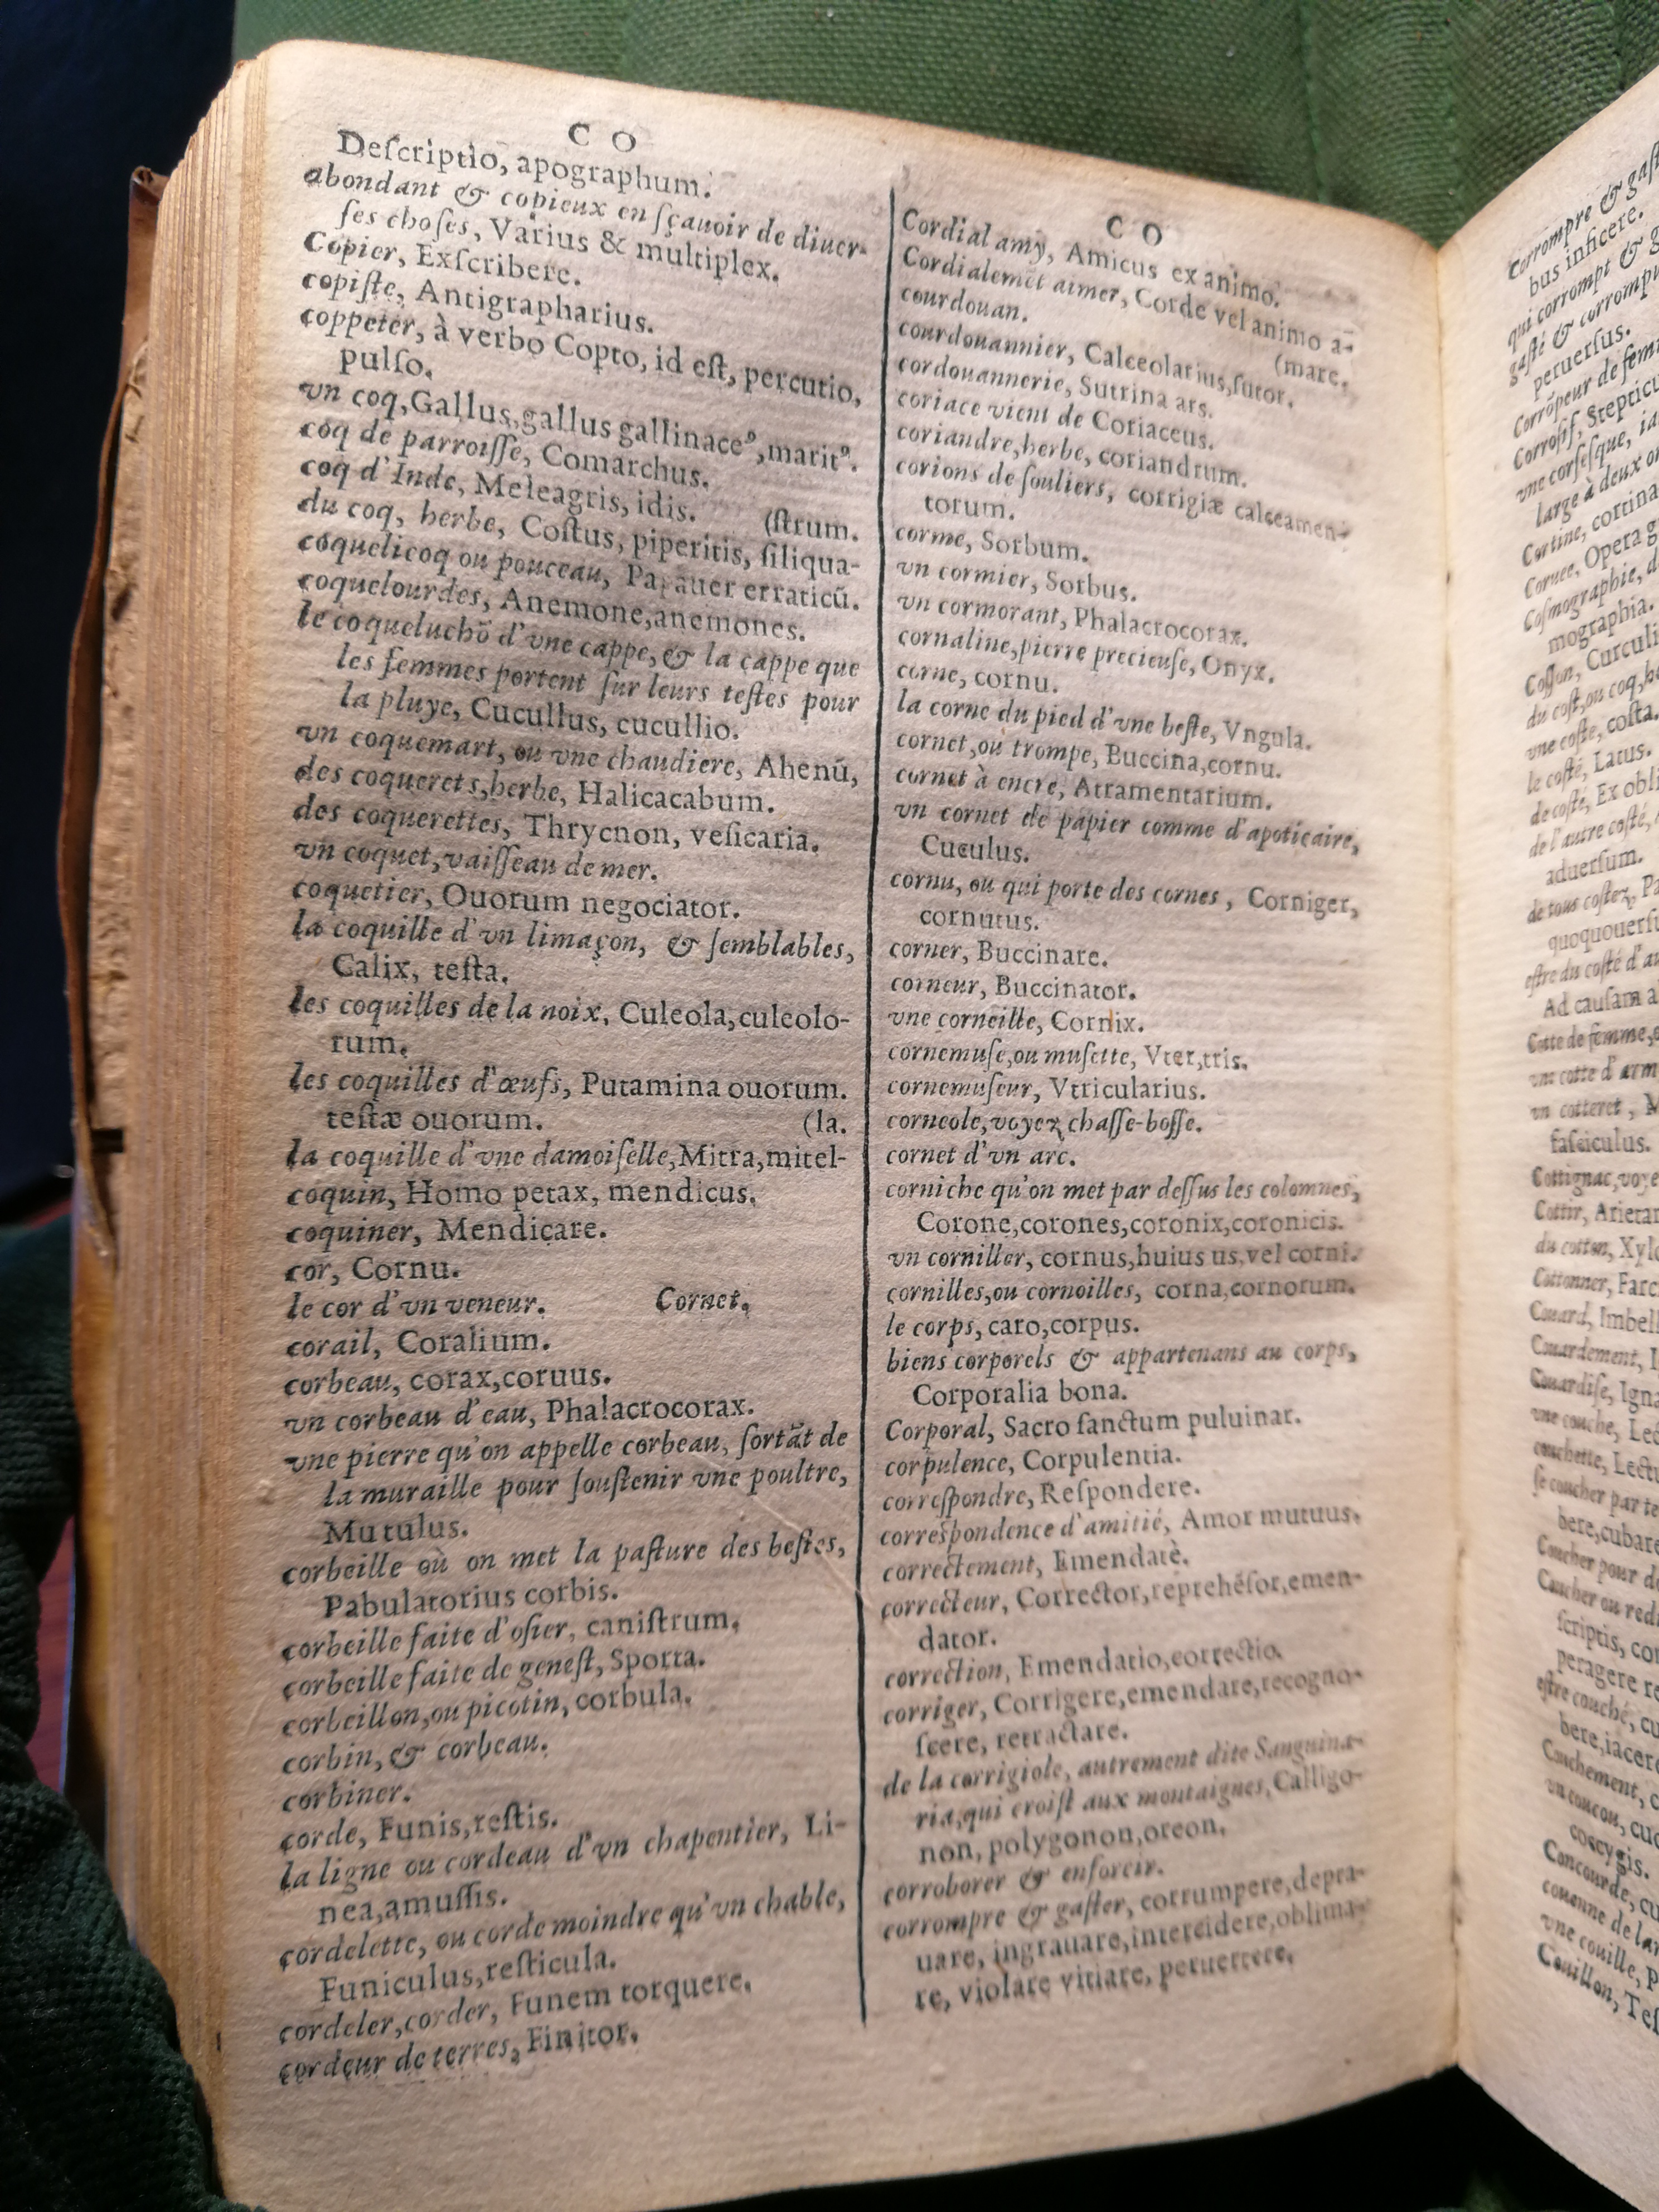 C O
Deſcriptio, apographum.
abondant & copieux en ſçauoir de diuer-
ſes choſes, Varius & multiplex.
Copier, Exſcribere.
copiſte, Antigrapharius.
coppeter, à verbo Copto, id eſt, percutio,
pulſo.
vn coq, Gallus, gallus gallinaceꝰ, maritꝰ.
coq de parroiſſe, Comarchus.
coq d'Inde, Meleagris, idis. (ſtrum.
du coq, herbe, Coſtus, piperitis, ſiliqua-
coquelicoq ou pouceau, Papauer erraticū.
coquelourdes, Anemone, anemones.
le coqueluchō d'vne cappe, & la cappe que
les femmes portent ſur leurs teſtes pour
la pluye, Cucullus, cucullio.
vn coquemart, ou vne chaudiere, Ahenū,
des coquerets, herbe, Halicacabum.
des coquerettes, Thrycnon, veſicaria.
vn coquet, vaiſſeau de mer.
coquetier, Ouorum negociator.
la coquille d'vn limaçon, & ſemblables,
Calix, teſta.
les coquilles de la noix, Culeola, culeolo-
rum.
les coquilles d'œufs, Putamina ouorum.
teſtæ ouorum. (la.
la coquille d'vne damoiſelle, Mitra, mitel-
coquin, Homo petax, mendicus.
coquiner, Mendicare.
cor, Cornu.
le cor d'vn veneur. Cornet.
corail, Coralium.
corbeau, corax, coruus.
vn corbeau d'eau, Phalacrocorax.
vne pierre qu'on appelle corbeau, ſortāt de
la muraille pour ſouſtenir vne poultre,
Mutulus.
corbeille où on met la paſture des beſtes,
Pabulatorius corbis.
corbeille faite d'oſier, caniſtrum.
corbeille faite de geneſt, Sporta.
corbeillon, ou picotin, corbula.
corbin, & corbeau.
corbiner.
corde, Funis, reſtis.
la ligne ou cordeau d'vn chapentier, Li-
nea, amuſſis.
cordelette, ou corde moindre qu'vn chable,
Funiculus, reſticula.
cordeler, corder, Funem torquere.
cordeur de terres, Finitor.
C O
Cordial amy, Amicus ex animo.
Cordialemēt aimer, Corde vel animo a-
courdouan. (mare.
courdouannier, Calceolarius, ſutor.
cordouannerie, Sutrina ars.
coriace vient de Coriaceus.
coriandre, herbe, coriandrum.
corions de ſouliers, corrigiæ calceamen-
torum.
corme, Sorbum.
vn cormier, Sorbus.
vn cormorant, Phalacrocorax.
cornaline, pierre precieuſe, Onyx.
corne, cornu.
la corne du pied d'vne beſte, Vngula.
cornet, ou trompe, Buccina, cornu.
cornet à encre, Atramentarium.
vn cornet de papier comme d'apoticaire,
Cuculus.
cornu, ou qui porte des cornes, Corniger,
cornutus.
corner, Buccinare.
corneur, Buccinator.
vne corneille, Cornix.
cornemuſe, ou muſette, Vter, tris.
cornemuſeur, Vtricularius.
corneole, voyez chaſſe-boſſe.
cornet d'vn arc.
corniche qu'on met par deſſus les colomnes,
Corone, corones, coronix, coronicis.
vn corniller, cornus, huius us, vel corni.
cornilles, ou cornoilles, corna, cornorum.
le corps, caro, corpus.
biens corporels & appartenans au corps,
Corporalia bona.
Corporal, Sacro ſanctum puluinar.
corpulence, Corpulentia.
correſpondre, Reſpondere.
correſpondence d'amitié, Amor mutuus.
correctement, Emendatè.
correcteur, Corrector, reprehēſor, emen-
dator.
correction, Emendatio, correctio.
corriger, Corrigere, emendare, recogno-
ſcere, retractare.
de la corrigiole, autrement dite Sanguina-
ria, qui croiſt aux montaignes, Calligo-
non, polygonon, oreon.
corroborer & enforcir.
corrompre & gaſter, corrumpere, depra-
uare, ingrauare, intercidere, oblima-
re, violare vitiare, peruertere.
Corrompre & gaſt
bus inficere.
qui corrompt & g
gaſté & corrompu
peruerſus.
Corrōpeur de fem
Corroſif, Stepticu
vne corſeſque, ia
large à deux
Cortine, cortina
Coruee, Opera g
Coſmographie, d
mographia.
Coſſon, Curculi
du coſt, ou coq, he
vne coſte, coſta.
le coſté, Latus.
de coſté, Ex obli
de l'autre coſté,
aduerſum.
de tous coſtez, Pa
quoquouerſu
eſtre du coſté d'au
Ad cauſam a
Cotte de femme,
vne cotte d'arm
vn cotteret, M
faſciculus.
Cottignac, voye
Cottir, Arietar
du cotton, Xylo
Cottonner, Farc
Couard, Imbell
Couardement, I
Couardiſe, Igna
vne couche, Lec
couchette, Lectu
ſe coucher par te
bere, cubare
Coucher pour d
Coucher ou redi
ſcriptis, co
peragere re
eſtre couché, cu
bere, iacere
Couchement, c
vn coucou, cuc
coccygis.
Coucourde, cu
couenne de lar
vne couille, P
Couillon, Teſ